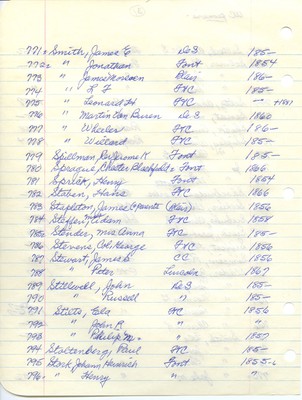 771 Smith, James E DeS 185-
772 " Jonathan Font 1854
773 " James Monroen Blair 186-
774 " L F FYC 185-
775 " Leonard H FYC — +1881
776 " Martin Van Buren DeS 1860
777 " Wheeler FYC 186-
778 " Willard FYC 185-
779 Spillman, K Font 185-
780 Sprague, Chester Font 1866
781 Sprick, Henry Font 1864
782 Stehen, Hans FYC 1866
783 Stapleton, James (Blair) 1856
784 Steffen, Adam FYC 1858
785 Stender, Mrs Anna FYC 185-
786 Stevens, Col George FYC 1856
787 Stewart, James S CC 1856
788 " Peter Lincoln 1867
789 Stillwell, John DeS 185-
790 " Russell " 185-
791 Stitts, Ela FYC 1856
792 " John R " "
793 " Philip M. " 1857
794 Stoltenberg, Paul FYC 185-
795 Stork, Johann Heinrich Font 1855-6
796 " Henry " "